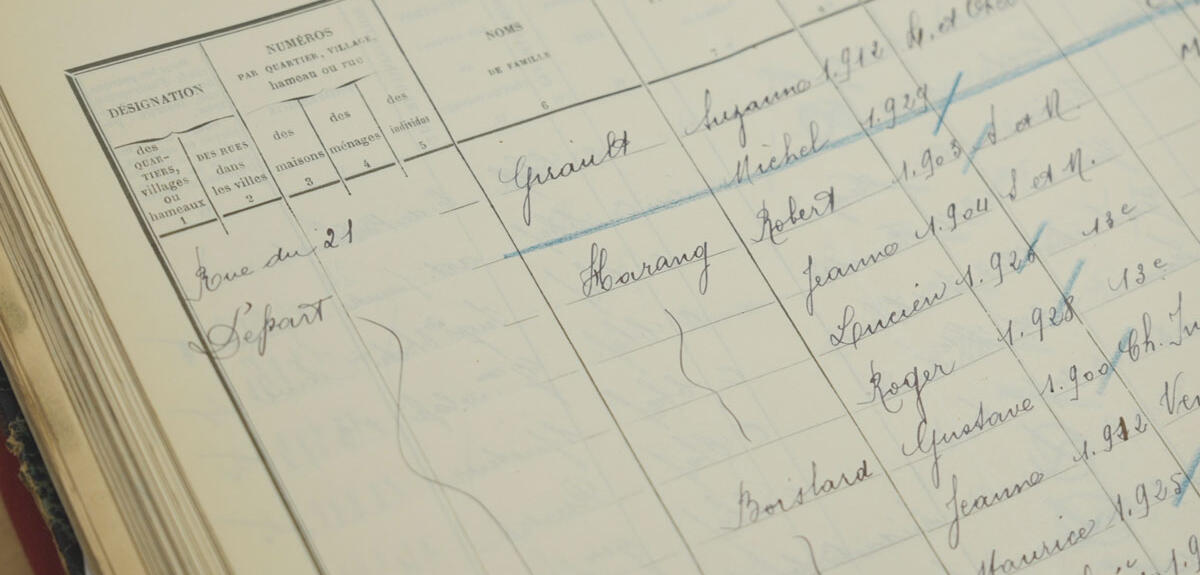 DÉSIGNATION
des QUAR-
TIERS,
villages
ou
hameaux
1
DES RUES
dans
les villes
2
NUMÉROS
PAR QUARTIER, VILLAGE,
hameau ou rue
des
maisons
3
des
ménages
4
des
individus
5
NOMS
DE FAMILLE
6
7
Rue du 21
Départ
Girault Suzanne 1.912
Michel 1.929
Harang Robert 1.903 S et N
Jeanne 1.904 S et N.
Lucien 1.926 13e
Roger 1.928 13e
Boislard Gustave 1.900 Ch.
Jeanne 1.912
Maurice 1.925